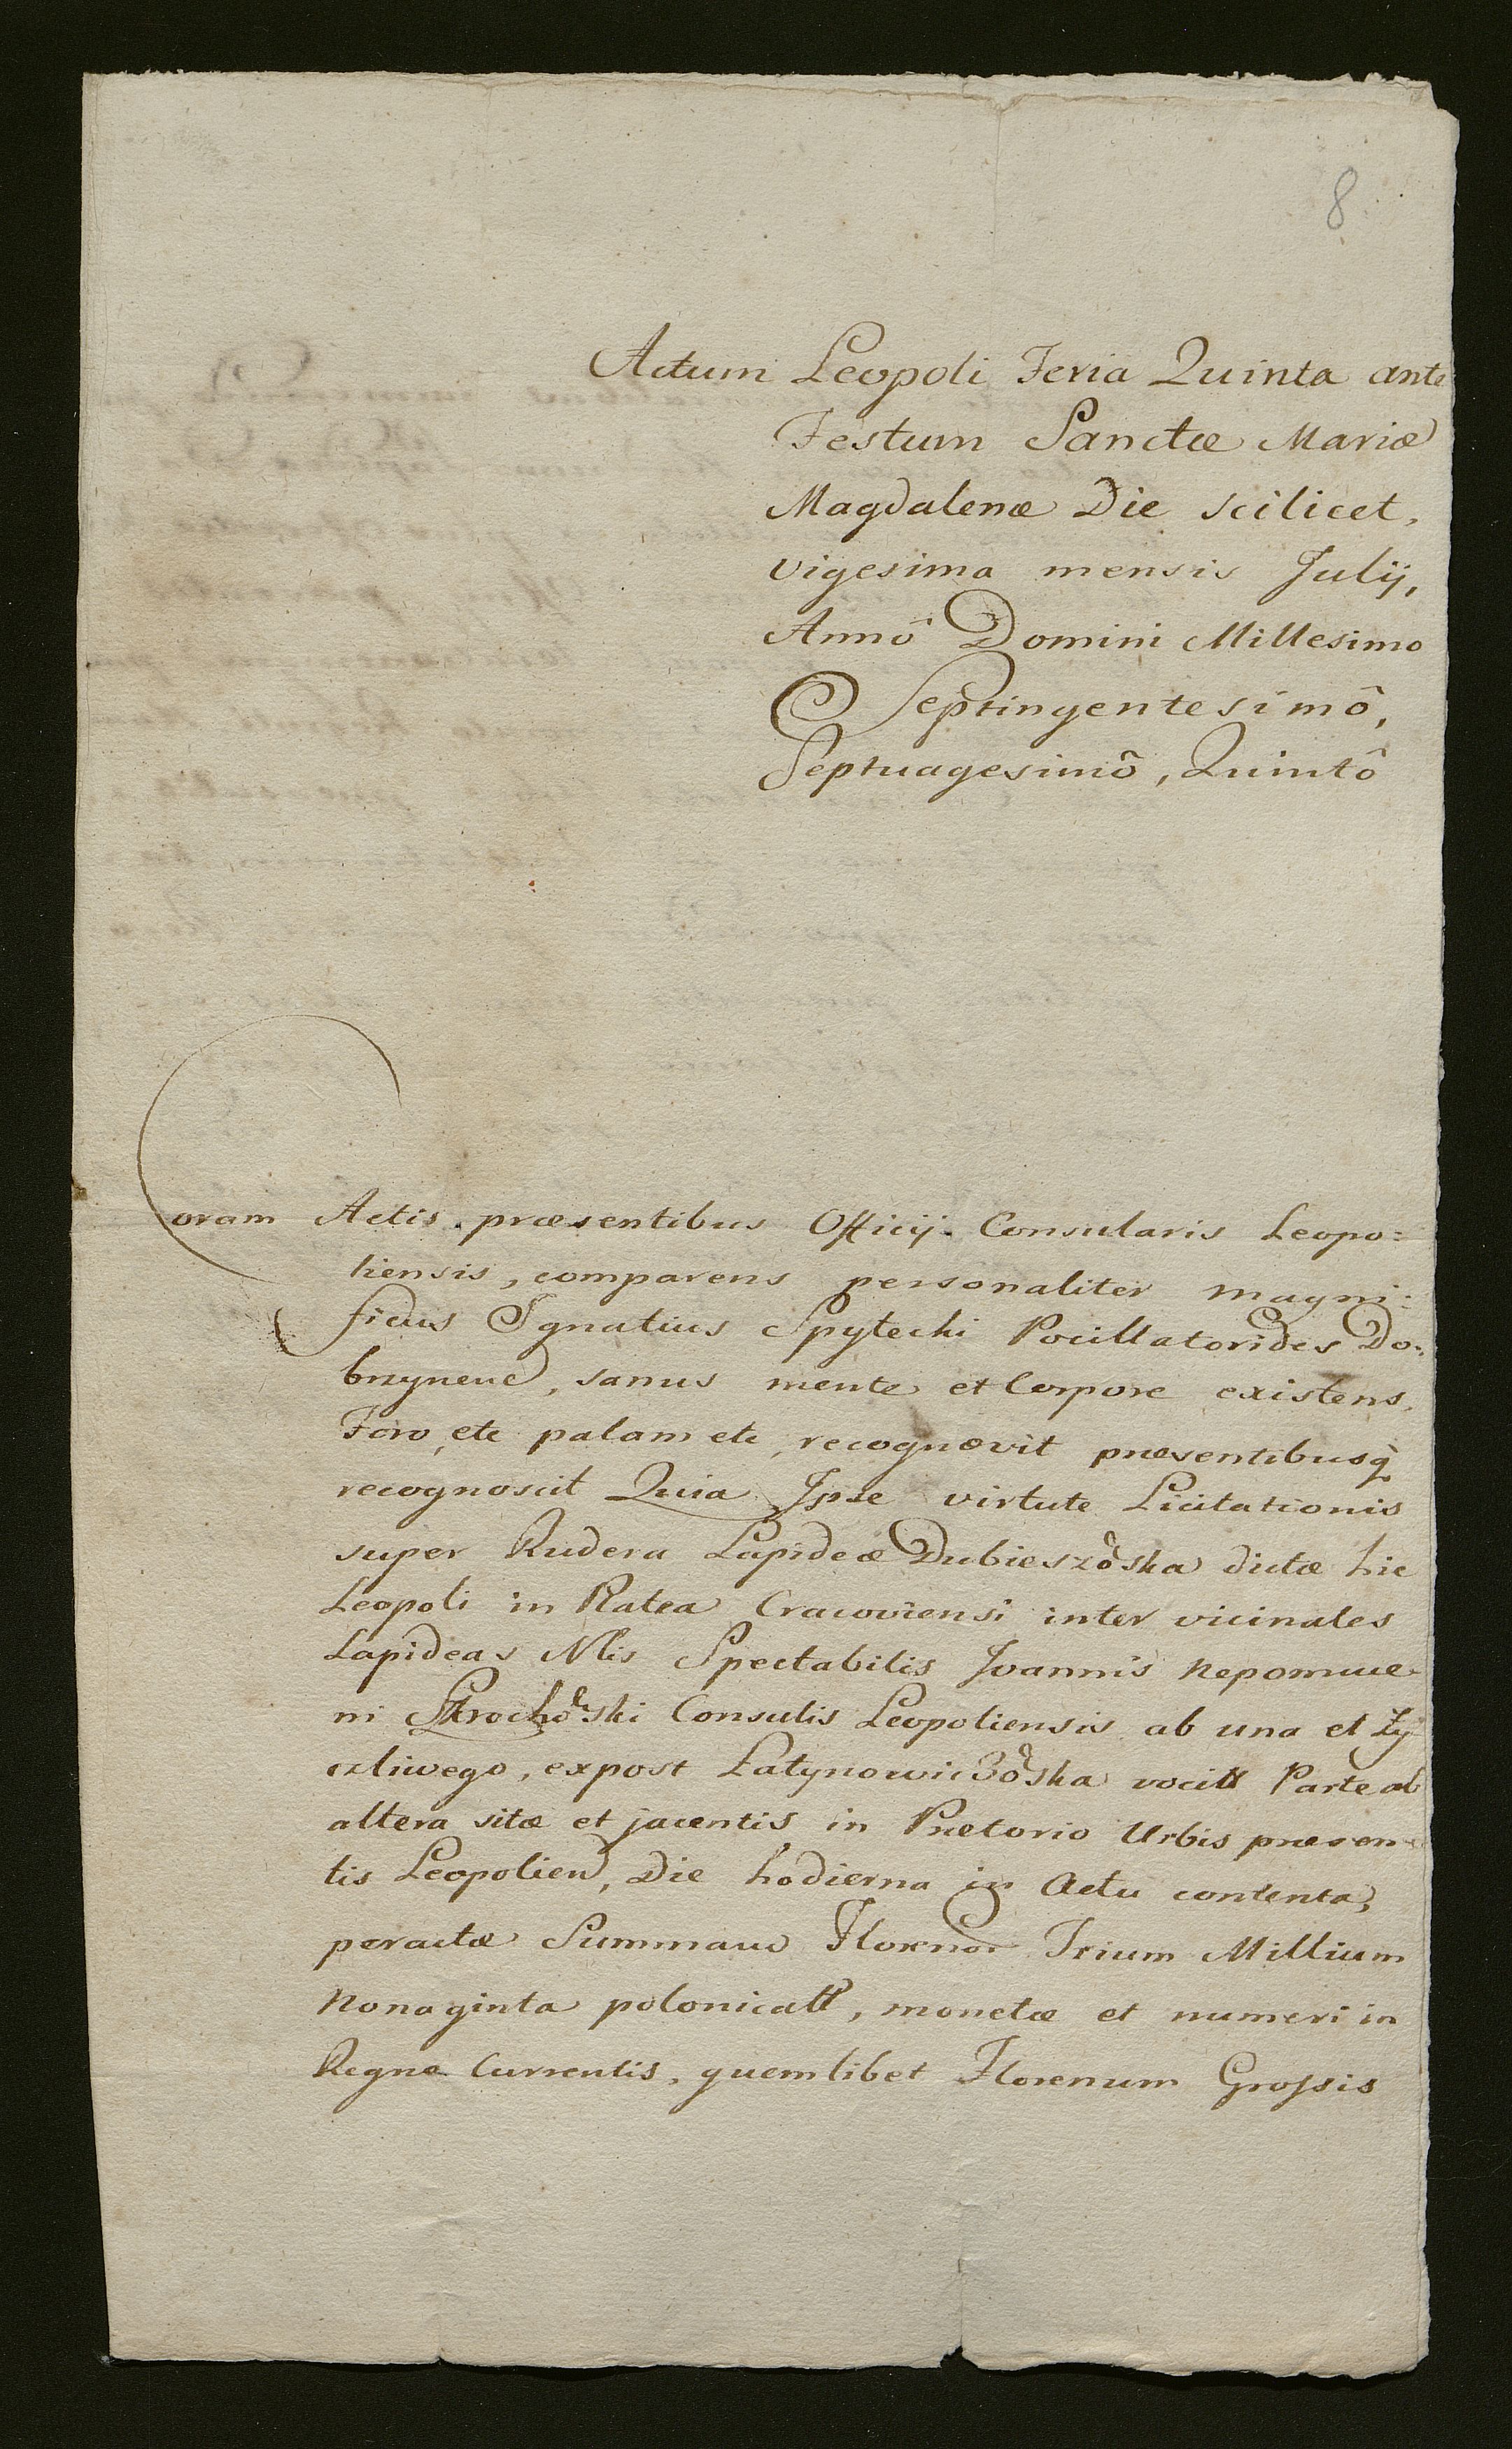 8
Actum Leopoli Feria Quinta ante
Festum Sanctæ Mariæ
Magdalenæ Die scilicet,
vigesima mensis Julij,
Annô Domini Millesimo
Septingentesimô,
Septuagesimô, Quintô
Coram Actis præsentibus Officij Consularis Leopo:
liensis, comparens personaliter Magni:
ficus Ignatius Spytecki Pocillatorides Do:
brzynen, sanus mente et Corpore existens,
Foro etc palam etc, recognovit præsentibusq
recognoscit Quia Ipse virtute Licitationis
super Rudera Lapideæ Dubieszôska dictæ hic
Leopoli in Platea Cracoviensi inter vicinales
Lapideas Nlis Spectabilis Joannis Nepomuce
ni Consulis Leopoliensis ab una et Zy
czliwego, expost Latynowiczôska vocit Parte ab
altera sitæ et jacentis in Prætorio Urbis præsen
tis Leopolien, Die hodierna in Actu contenta,
peractæ Summam Floren Trium Millium
Nonaginta polonical, monetæ et numeri in
Regno Currentis, quemlibet Florenum Grossis